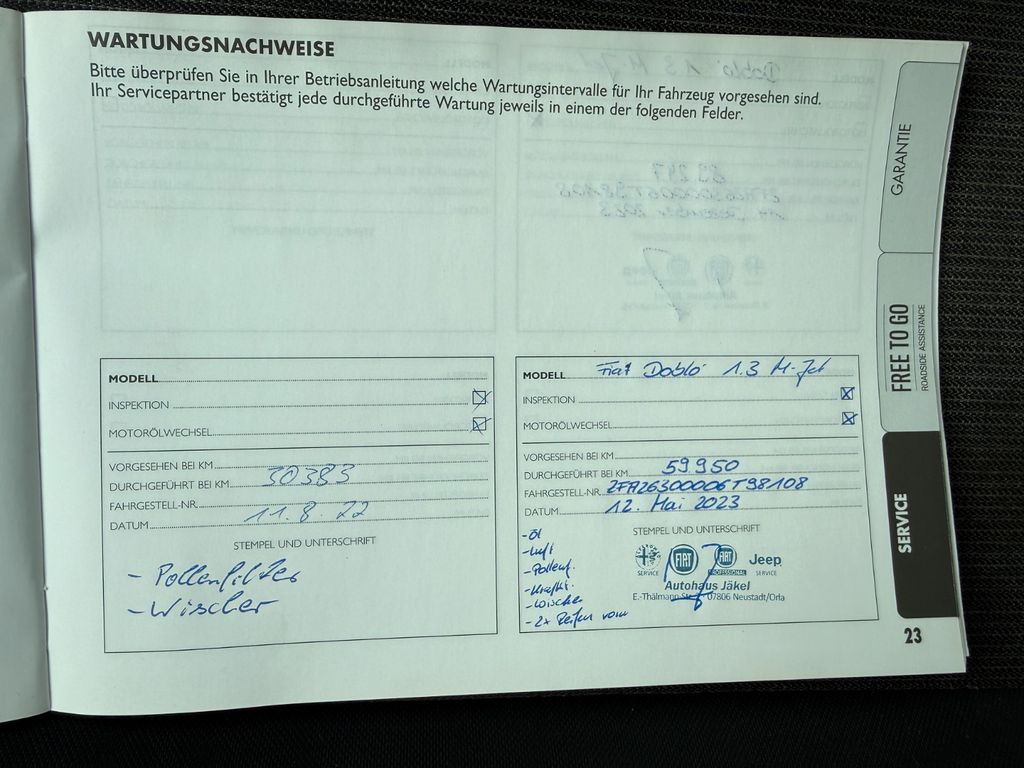 WARTUNGSNACHWEISE
Bitte überprüfen Sie in Ihrer Betriebsanleitung welche Wartungsintervalle für Ihr Fahrzeug vorgesehen sind.
Ihr Servicepartner bestätigt jede durchgeführte Wartung jeweils in einem der folgenden Felder.
MODELL
INSPEKTION
MOTORÖLWECHSEL
VORGESEHEN BEI KM
DURCHGEFÜHRT BEI KM 30383
FAHRGESTELL-NR.
DATUM 11.8.22
STEMPEL UND UNTERSCHRIFT
- Pollenfilter
- Wischer
MODELL Fiat Doblò 1.3 M-Jet
INSPEKTION
MOTORÖLWECHSEL
VORGESEHEN BEI KM
DURCHGEFÜHRT BEI KM 59950
FAHRGESTELL-NR. ZFA26300006T98108
DATUM 12. Mai 2023
STEMPEL UND UNTERSCHRIFT
- Öl
- Luft
- Pollenf.
- Kraftst.
- Wischer
- 2x Reifen vorn
SERVICE
FIAT
FIAT
PROFESSIONAL
Jeep
SERVICE
Autohaus Jäkel
E.-Thälmann-Str. 07806 Neustadt/Orla
GARANTIE
FREE TO GO
ROADSIDE ASSISTANCE
SERVICE
23